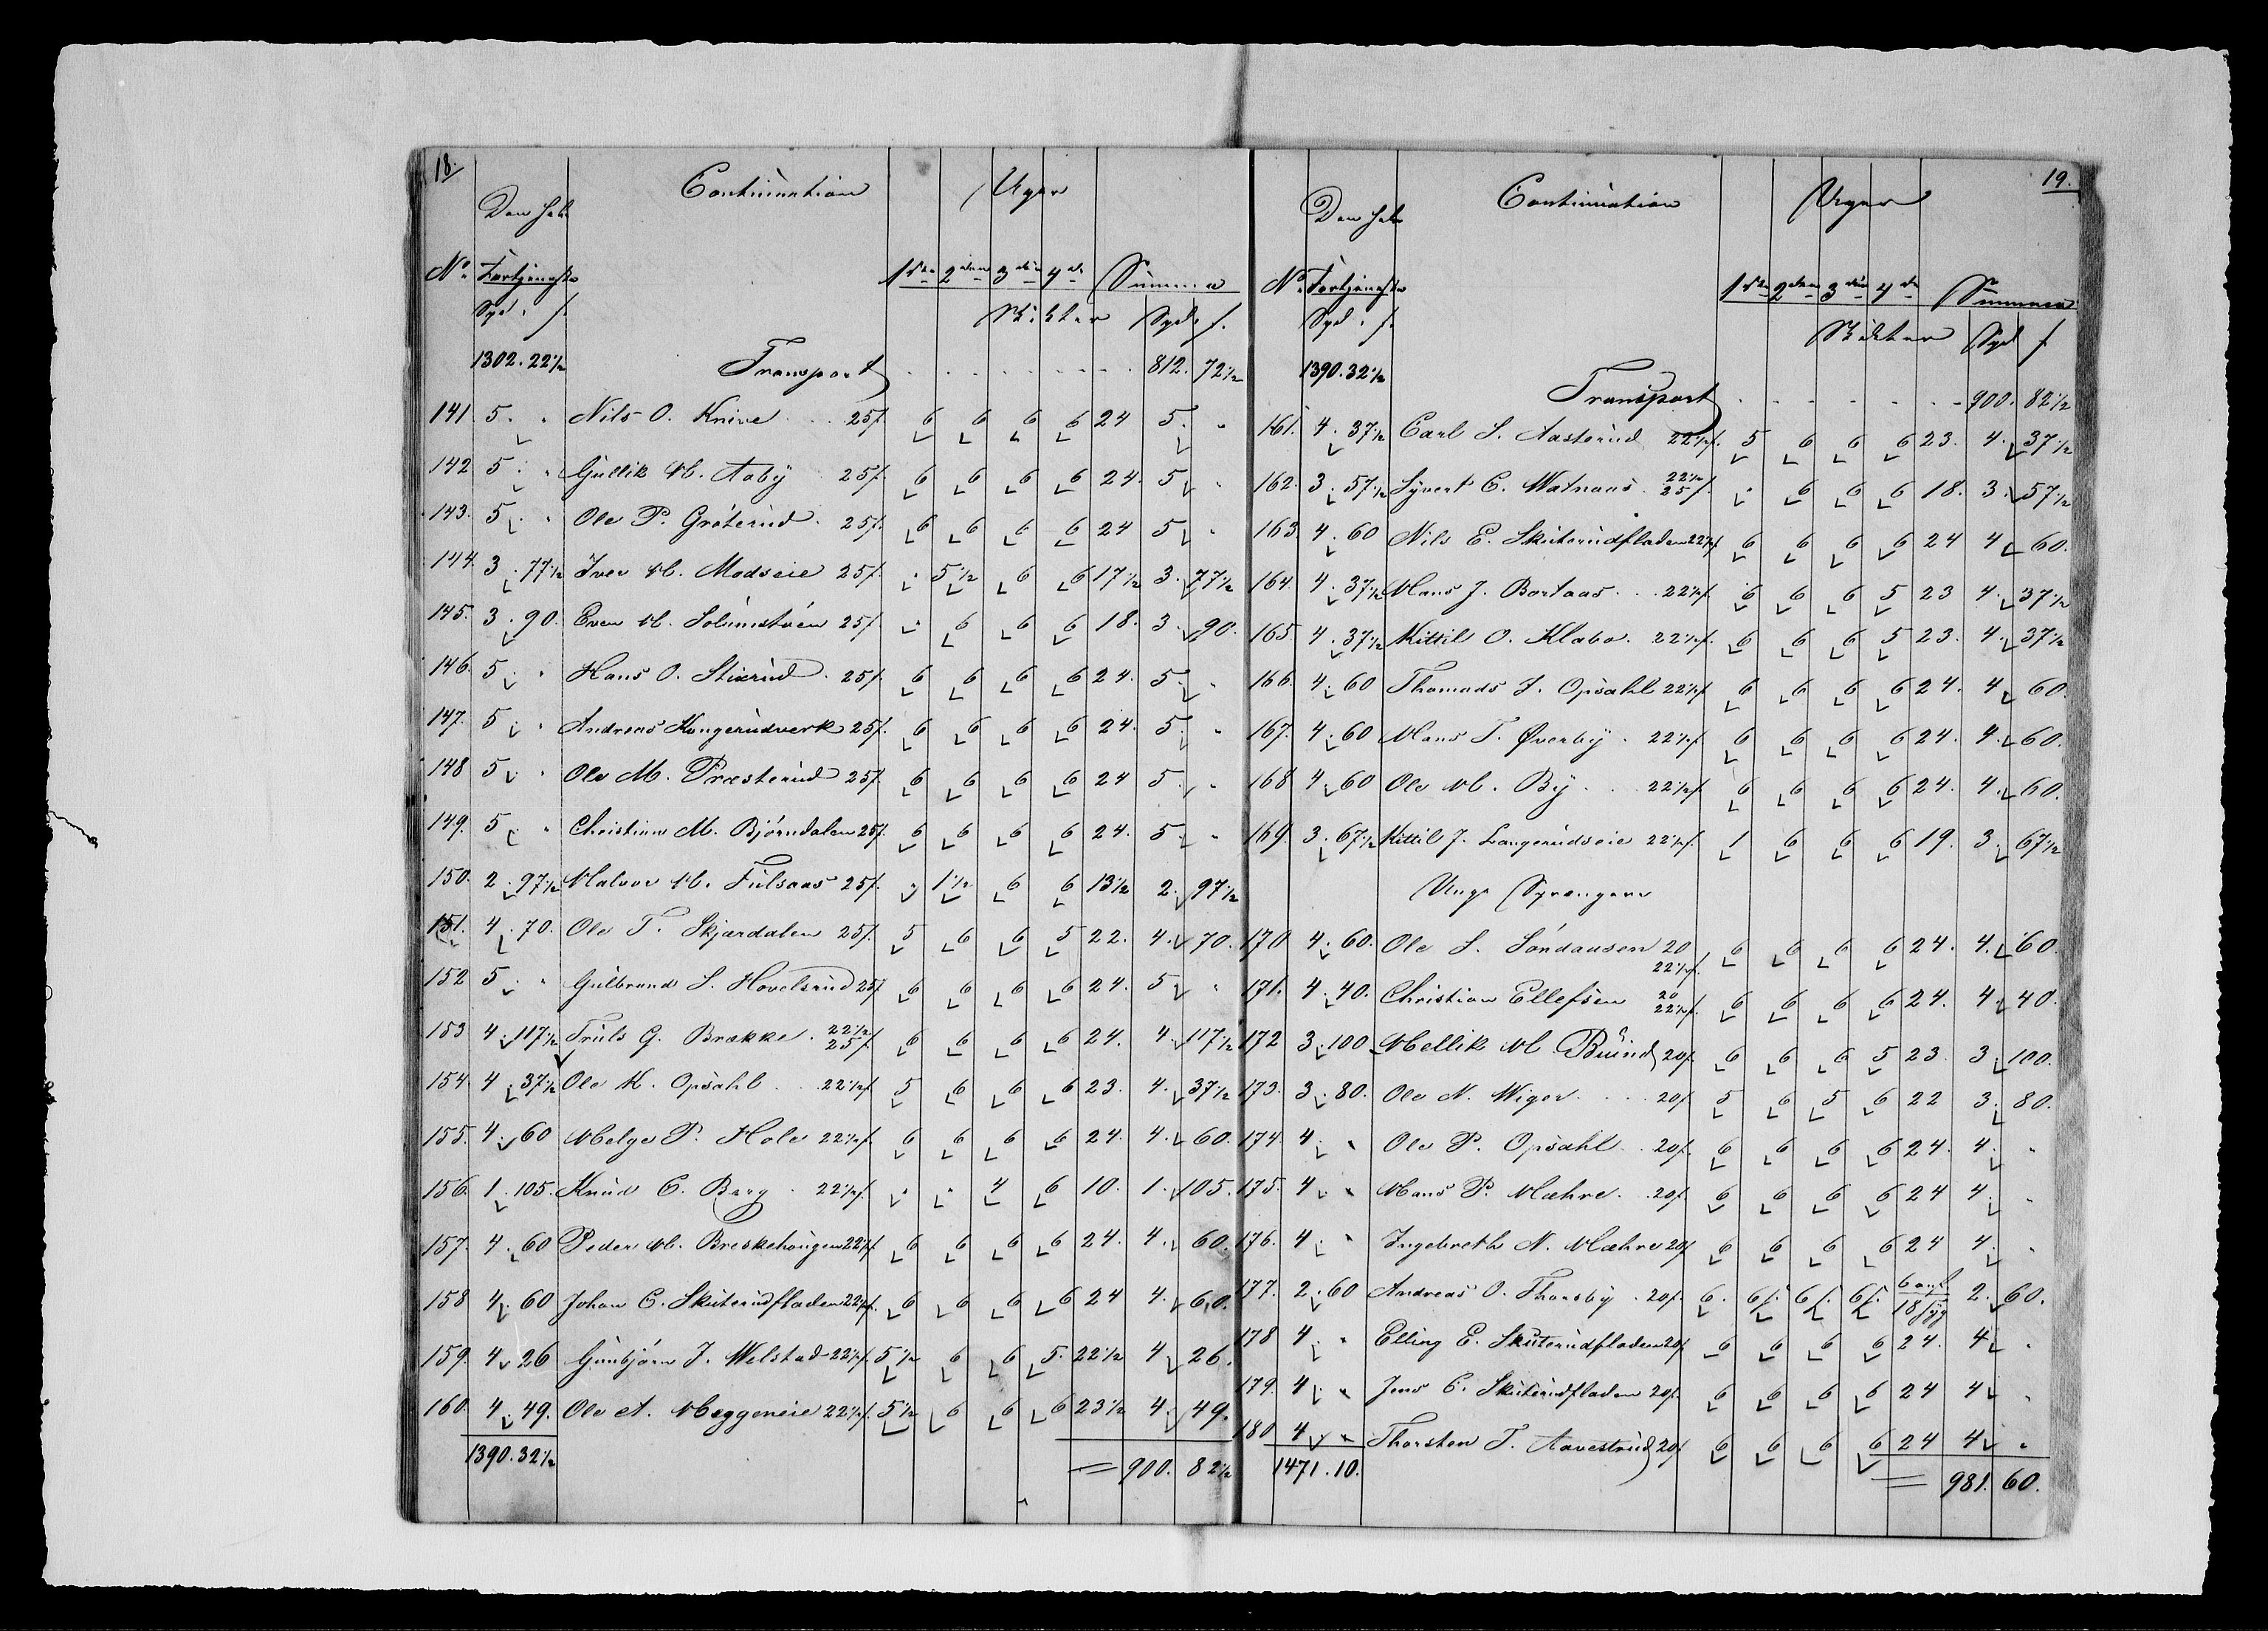 18.
Continuation Uger
Den hele
No. Fortjeneste 1ste 2den 3die 4de Summa
Spd. s. Skikter Spd. s.
1302. 22½ Transport 812. 72½
141 5. " Nils O. Knive 25s. 6 6 6 6 24 5. "
142 5. " Gullik H. Aaby 25s. 6 6 6 6 24. 5. "
143. 5. " Ole P. Gróterud 25s. 6 6 6 6 24 5. "
144. 3. 77½ Iver H. Modseie 25s. " 5½ 6 6 17½ 3. 77½
145. 3. 90. Even H. 25s. " 6 6 6 18. 3. 90.
146. 5. " Hans O. Stixrud 25s. 6 6 6 6 24. 5. "
147. 5. " Andreas Kongerudverk 25s. 6 6 6 6 24. 5. "
148 5. " Ole M. Præsterud 25s. 6 6 6 6 24 5. "
149. 5. " Christian M. Bjórndalen 25s. 6 6 6 6 24. 5. "
150. 2. 97½ Halvor H. Fulsaas 25s. " 1½ 6 6 13½ 2. 97½
151. 4. 70. Ole T. Skjærdalen 25s. 5 6 6 5 22. 4. 70.
152 5. " Gulbrand S. Hovelsrud 25s. 6 6 6 6 24. 5. "
153 4. 117½ Truls G. Brække 22½ 25s. 6 6 6 6 24. 4. 117½
154. 4. 37½ Ole K. Opsahl 22½s. 5 6 6 6 23. 4. 37½
155. 4. 60 Helge P. Hole 22½s. 6 6 6 6 24. 4. 60.
156. 1. 105. Knud C. Berg 22½s. " " 4 6 10. 1. 105.
157. 4. 60 Peder H. Breskehaugen 22½s. 6 6 6 6 24. 4. 60.
158 4. 60 Johan C. Skuterudfladen 22½s. 6 6 6 6 24 4. 60.
159. 4. 26 Gunbjórn J. Welstad 22½s. 5½ 6 6 5. 22½ 4. 26.
160. 4. 49. Ole A. Heggeneie 22½s. 5½ 6 6 6 23½ 4. 49.
1390. 32½ = 900. 82½
19.
Continuation Uger
Den hele
No. Fortjeneste 1ste 2den 3die 4de Summa
Spd. s. Skikter Spd s
1390. 32½ Transport 900. 82½
161. 4. 37½ Carl S. Aasterud 22½s. 5 6 6 6 23. 4. 37½
162. 3. 57½ Syvert C. Watnaas 22½ 25s. " 6 6 6 18. 3. 57½
163. 4. 60 Nils E. Skuterudfladen 22½s. 6 6 6 6 24 4. 60.
164. 4. 37½ Hans J. Bortaas 22½s. 6 6 6 5 23 4. 37½
165. 4. 37½ Kittil O. Klabo 22½s. 6 6 6 5 23. 4. 37½
166. 4. 60 Thomads J. Opsahl 22½s. 6 6 6 6 24. 4. 60.
167. 4. 60 Hans T. Øverby 22½s. 6 6 6 6 24. 4. 60.
168 4. 60 Ole H. By 22½s. 6 6 6 6 24. 4. 60.
169. 3. 67½ Kittil J. Langerudseie 22½s. 1 6 6 6 19. 3. 67½
Unge Sprengere
170 4. 60. Ole S. Söndausen 20 22½s. 6 6 6 6 24. 4. 60.
171. 4. 40. Christian Ellefsen 20 22½s. 6 6 6 6 24. 4. 40.
172 3. 100 Hellik H. 20s. 6 6 6 5 23. 3. 100.
173. 3. 80. Ole N. Wiger 20s. 5 6 5 6 22 3. 80.
174. 4. " Ole P. Opsahl 20s. 6 6 6 6 24. 4. "
175. 4. " Hans P. Mæhre 20s. 6 6 6 6 24 4. "
176. 4. " Ingebreth N. Mæhre 20s. 6 6 6 6 24 4. "
177. 2. 60 Andreas O. Thorsby 20s. 6. 6s. 6s. 6s. 6 arb 18 syg 2. 60.
178 4. " Elling E. Skuterudfladen 20s. 6 6 6 6 24. 4. "
179. 4. " Jens C. Skuterudfladen 20s. 6 6 6 6 24 4. "
180 4. " Thorsten T. Aavestrud 20s. 6 6 6 6 24 4. "
1471. 10. = 981. 60.